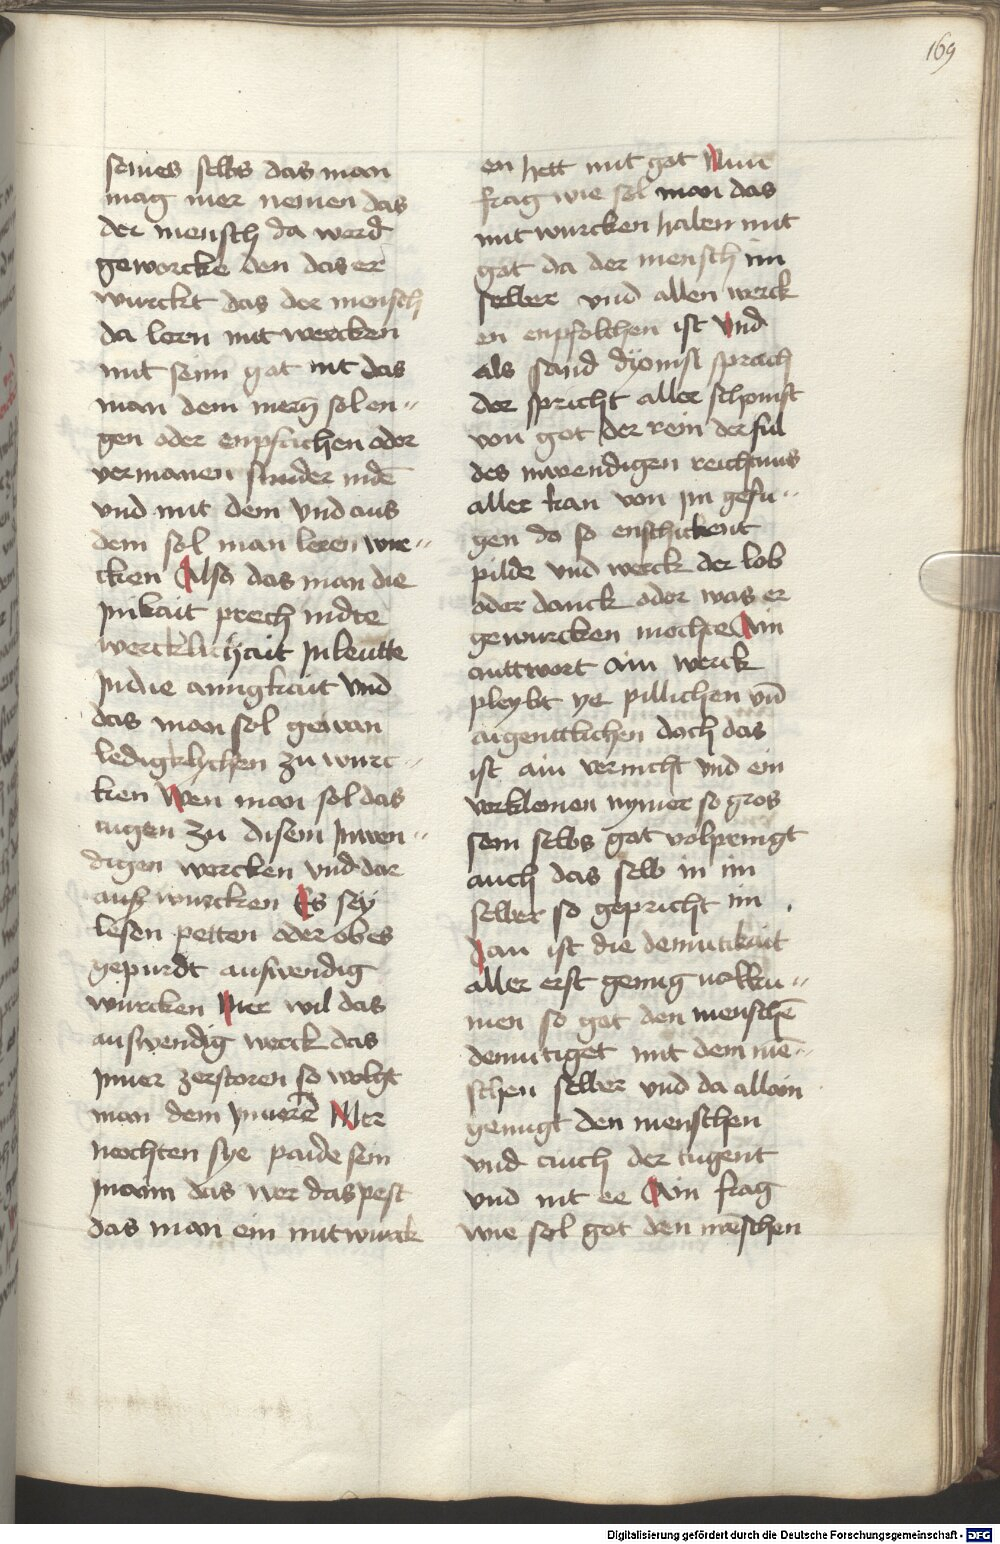 169
seines selbs das man
mag mer nemen das
der mensch da werd
geworcke den das er
wurckt das der mensch
da lern mit wercken
mit seim got nit das
man dem mensch sol en〃
gen oder enpfachen oder
vermanen sunder in dē
vnd mit dem vnd aus
dem sol man leren wur〃
cken Also das man die
Inikait prech in dte
wercklichait In leutte
In die ainigkait Vnd
das man sol gewan
ledigklychen zu wurc〃
ken Wen man sol das
augen zu disem Inwen〃
digen wercken vnd dar
auß wurcken Es sey
lesen petten oder ob es
gepurdt auswendig
wurcken Mer wil das
auswendig werck das
Inner zerstoren so volgt
man dem Innerē Mer
mochten sye paide sein
In aim das wer das pest
das man ein mit wurck
en hett mit got Nun
frag wie sol man das
mit wurcken halen mit
got da der mensch im
selber vnd allen werck
en enpfolchen ist Vnd
als sand dyonisi sprach
der spricht aller schonist
von got der von der ful
des inwendigen reichtums
aller kan von im geswi〃
gen da so enschickent
pilde vnd werck der lob
oder danck oder was er
gewurcken mochte Ain
anttwort ain werck
pleybt ye pillichen vn̄
aigenttlichen doch das
ist ain vernicht vnd ein
verkleinen nymer so gros
sein selbs got volpringt
auch das selb in im
selber so gepricht im
Dan ist die demutikait
aller erst genug volku〃
men so got den menschē
demutiget mit dem mē〃
schen selber vnd da allain
genugt den menschen
vnd auch der tugent
vnd nit ee Ain frag
wie sol got den mēschen
Digitalisierung gefördert durch die Deutsche Forschungsgemeinschaft - DFG